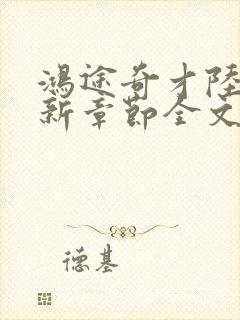 鴻途奇才陸
新章節全文
德基